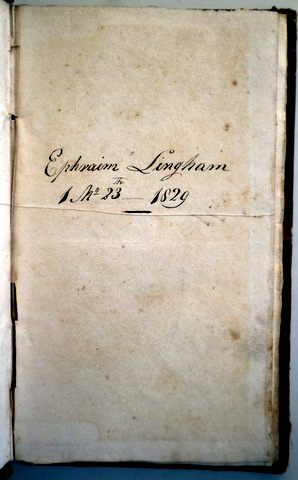 Ephraim Lingham
1 Mo 23th — 1829